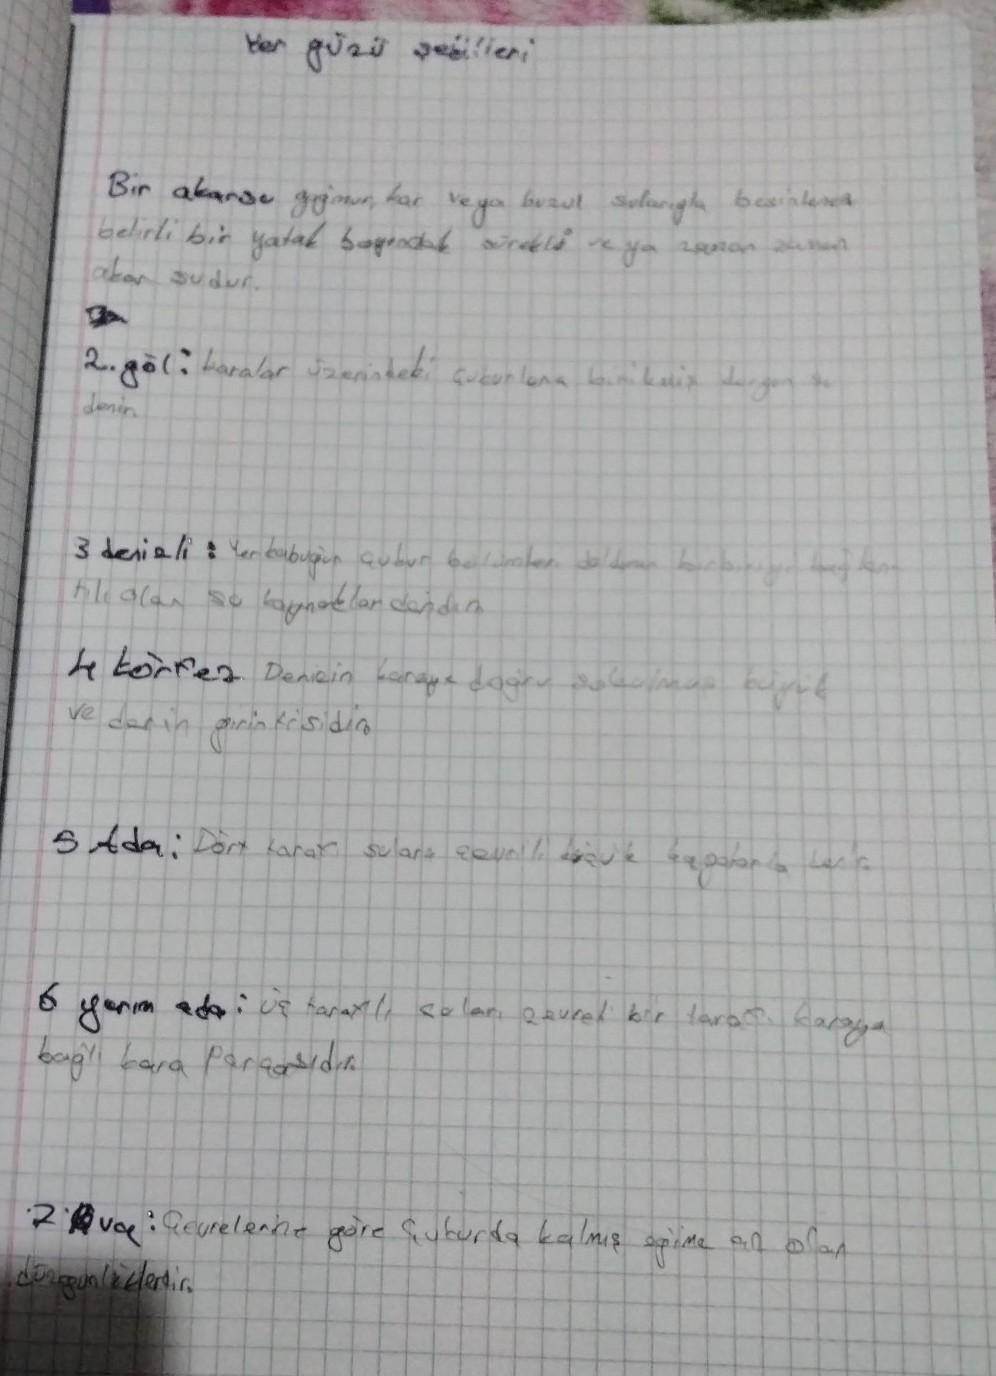 Yer yüzü şekilleri
Bir akarsu yağmur, kar veya buzul sularıyla beslenen
belirli bir yatak boyunca sürekli ve ya zaman zaman
akan sudur.
2. göl: karalar üzerindeki çukurlara birikmiş durgun su
denir.
3 denizli: Yer kabuğun çukur bölümleri dolduran birbiriyle
olan su kaynaklarındandır
4 körfez Denizin karaya doğru sokulmuş büyük
ve derin girintisidir
5 Ada: Dört taraf sularla çevrili küçük
6 yarım ada: üç taraflı suları çevrel bir taraf karaya
bağlı kara parçasıdır.
7 Ova: Çevrelerine göre çukurda kalmış eğime az olan
düzgünlüklerdir.